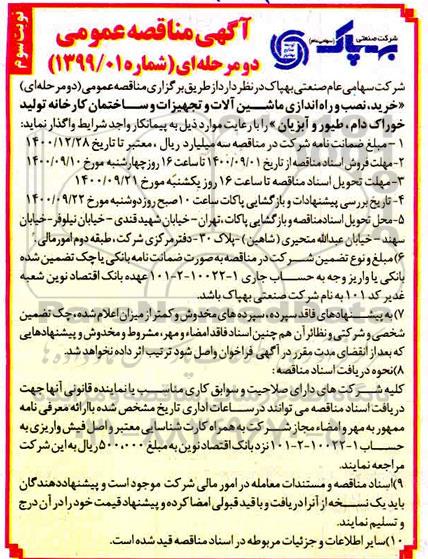 نوبت سوم
شرکت صنعتی
بهپاک
(سهامی عام)
آگهی مناقصه عمومی
دو مرحله‌ای (شماره ۱۳۹۹/۰۱)
شرکت سهامی عام صنعتی بهپاک در نظر دارد از طریق برگزاری مناقصه عمومی (دو مرحله‌ای)
«خرید، نصب و راه‌اندازی ماشین آلات و تجهیزات و ساختمان کارخانه تولید
خوراک دام، طیور و آبزیان» را با رعایت موارد ذیل به پیمانکار واجد شرایط واگذار نماید:
۱- مبلغ ضمانت نامه شرکت در مناقصه سه میلیارد ریال، معتبر تا تاریخ ۱۴۰۰/۱۲/۲۸
۲- مهلت فروش اسناد مناقصه از تاریخ ۱۴۰۰/۰۹/۰۱ تا ساعت ۱۶ روز چهارشنبه مورخ ۱۴۰۰/۰۹/۱۰
۳- مهلت تحویل اسناد مناقصه تا ساعت ۱۶ روز یکشنبه مورخ ۱۴۰۰/۰۹/۲۱
۴- تاریخ بررسی پیشنهادات و بازگشایی پاکات ساعت ۱۰ صبح روز دوشنبه مورخ ۱۴۰۰/۰۹/۲۲
۵- محل تحویل اسناد مناقصه و بازگشایی پاکات، تهران- خیابان شهید قندی - خیابان نیلوفر- خیابان
سهند - خیابان عبدالله متحیری (شاهین) - پلاک ۳۰ - دفتر مرکزی شرکت، طبقه دوم امور مالی.
۶) مبلغ و نوع تضمین شرکت در مناقصه به صورت ضمانت نامه بانکی یا چک تضمین شده
بانکی یا واریز وجه به حساب جاری ۱-۱۰۰۲۲-۲-۱۰۱ عهده بانک اقتصاد نوین شعبه
غدیر کد ۱۰۱ به نام شرکت صنعتی بهپاک باشد.
۷) به پیشنهادهای فاقد سپرده، سپرده‌های مخدوش و کمتر از میزان اعلام شده، چک تضمین
شخصی و شرکتی و نظائر آن هم چنین اسناد فاقد امضاء و مهر، مشروط و مخدوش و پیشنهادهایی
که بعد از انقضای مدت مقرر در آگهی فراخوان واصل شود ترتیب اثر داده نخواهد شد.
۸) نحوه دریافت اسناد مناقصه:
کلیه شرکت های دارای صلاحیت و سوابق کاری مناسب یا نماینده قانونی آنها جهت
دریافت اسناد مناقصه می توانند در ساعات اداری تاریخ مشخص شده با ارائه معرفی نامه
ممهور به مهر و امضاء مجاز شرکت به همراه کارت شناسایی معتبر و اصل فیش واریزی به
حساب ۱-۱۰۰۲۲-۲-۱۰۱ نزد بانک اقتصاد نوین به مبلغ ۵۰۰،۰۰۰ ریال به این شرکت
مراجعه نمایند.
۹) اسناد مناقصه و مستندات معامله در امور مالی شرکت موجود است و پیشنهاددهندگان
باید یک نسخه از آنرا دریافت و با قید قبولی امضا کرده و پیشنهاد قیمت خود را در آن درج
و تسلیم نمایند.
۱۰) سایر اطلاعات و جزئیات مربوطه در اسناد مناقصه قید شده است.